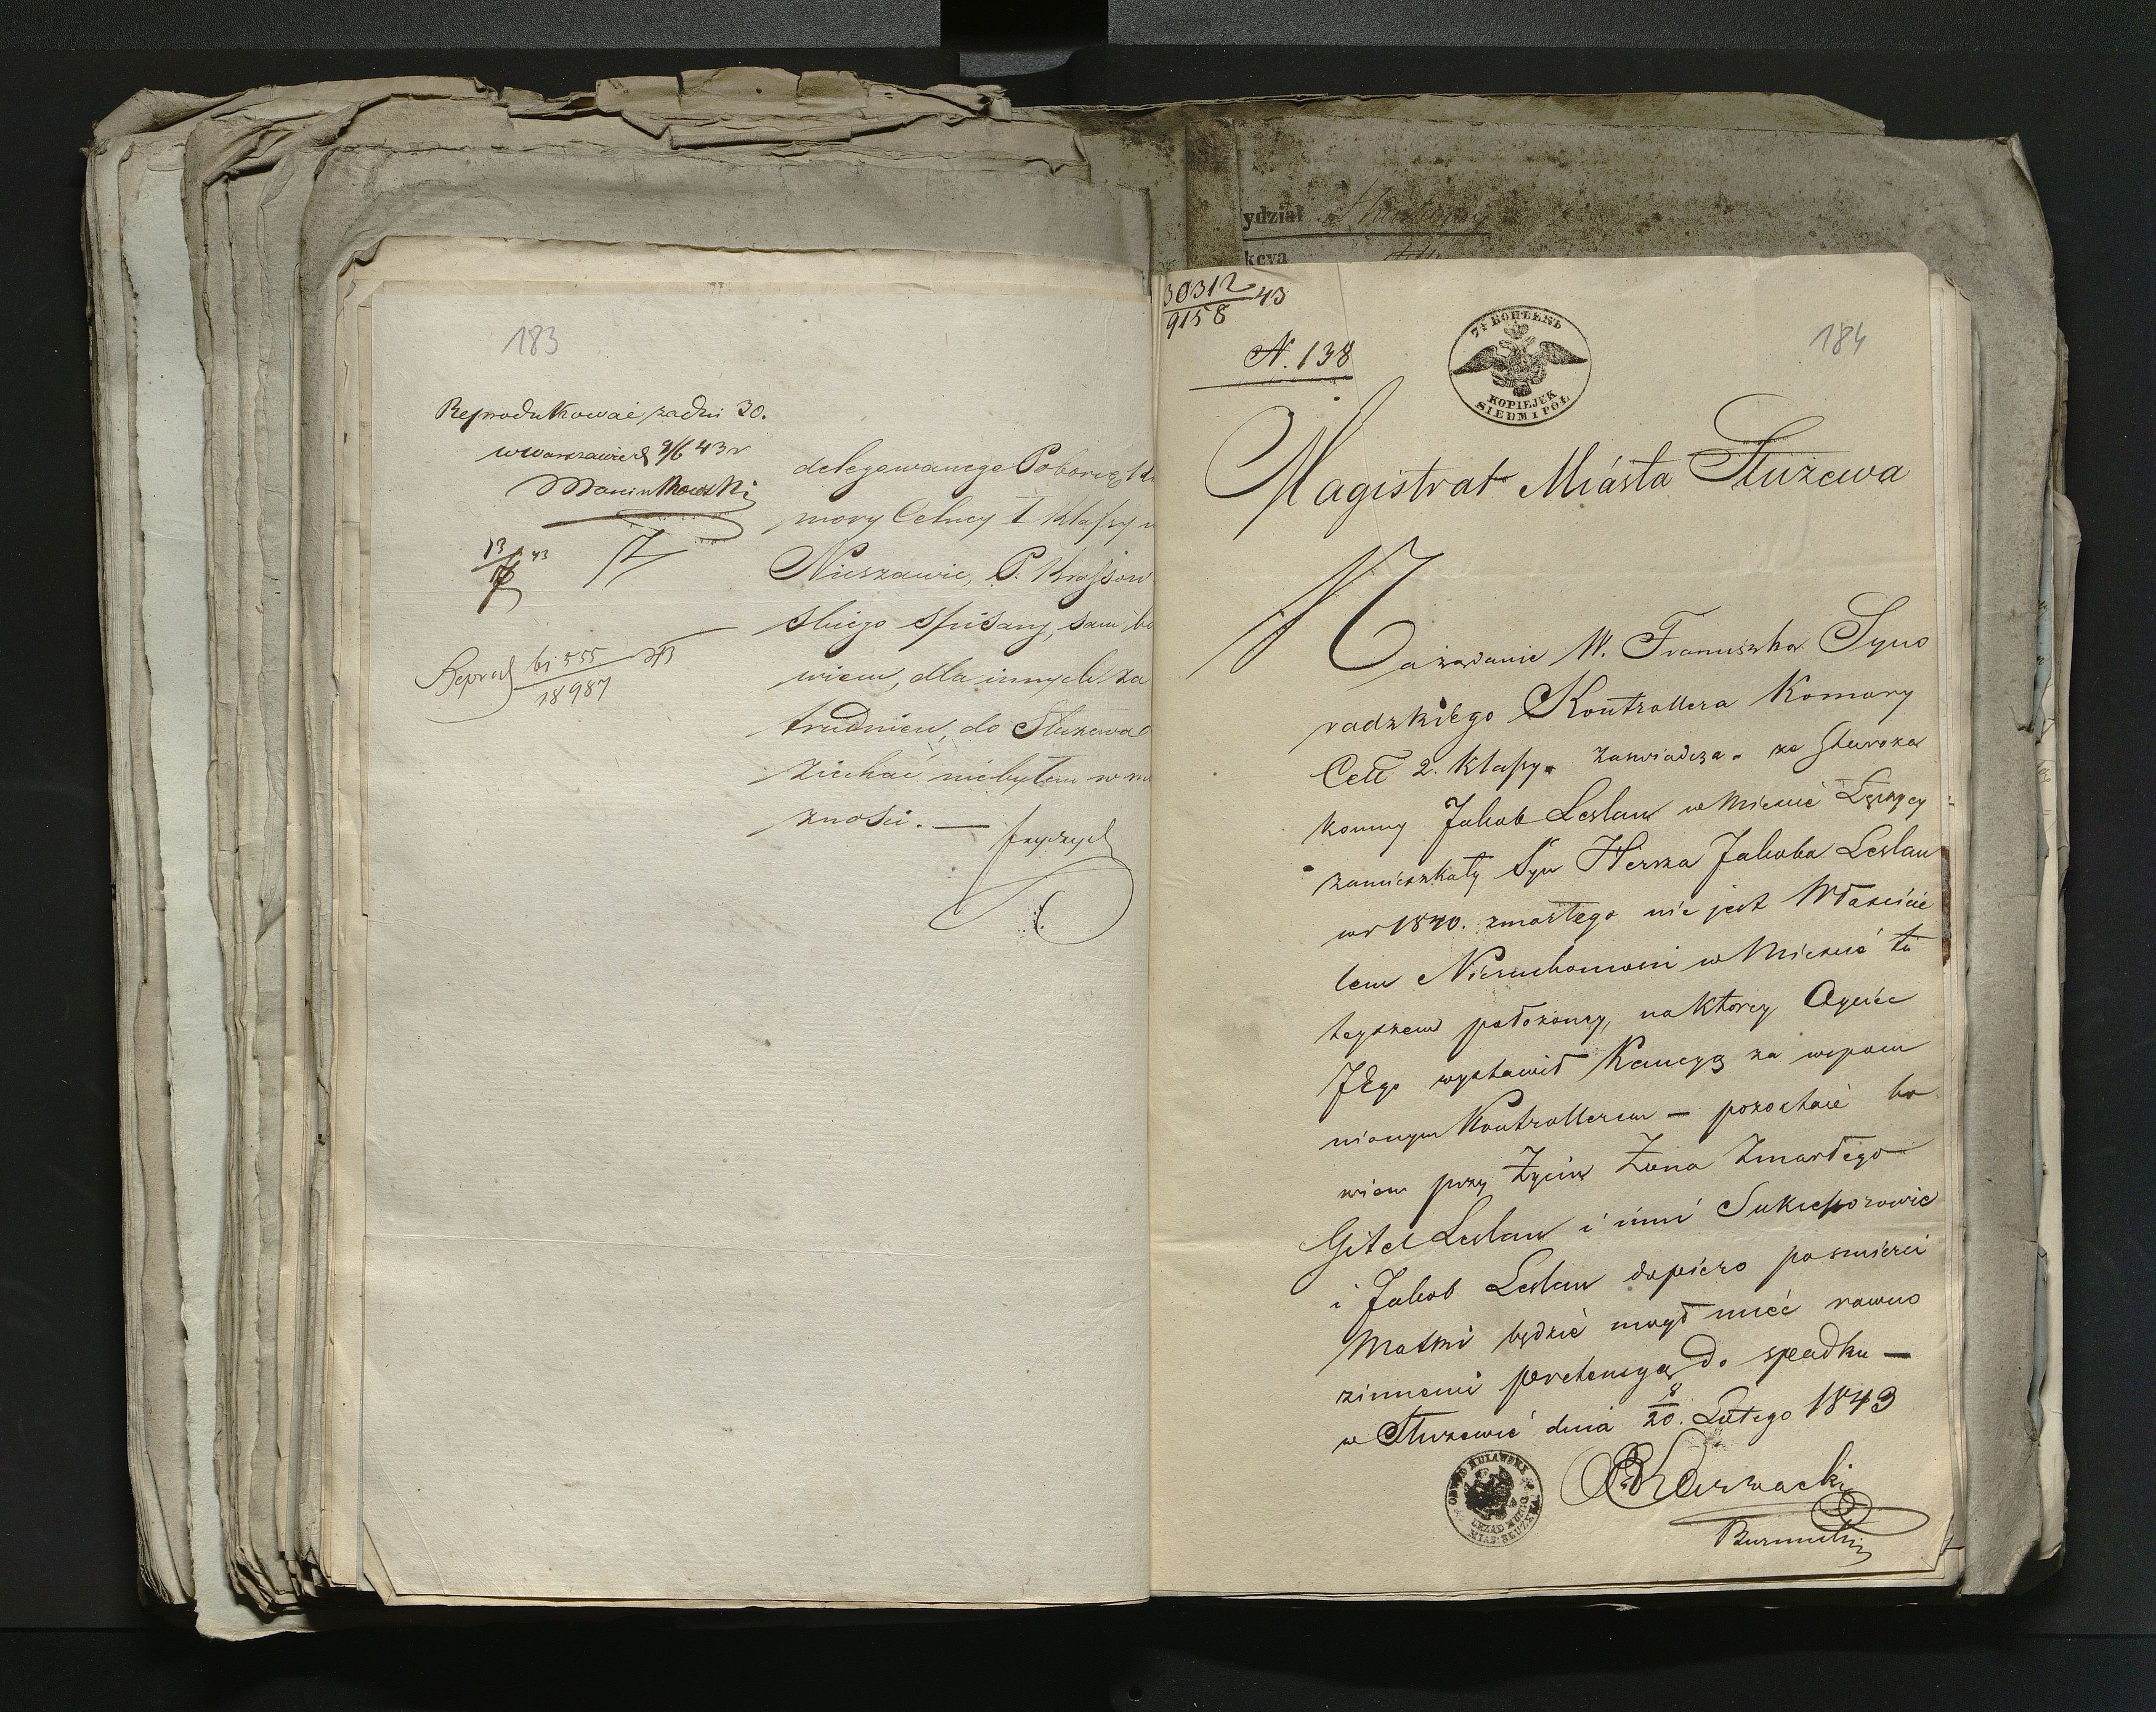 183
Reprodukować za dni 30.
w Warszawie d 9/6 43 r
Marcinkowski
13/6 43
Reprod 61555/18987 43
delegowanego Poborcę Ko
mory Celney I Klassy w
Nieszawie, P. Krassow
skiego spisany, sam bo
wiem, dla innych za
trudnień, do Służewa
ziechać niebyłem w mo
żności. —
ydział Skarbowy
kcya
30312/9158 43
N. 138
7½ КОПѢЕКЪ
KOPIEJEK
SIEDM I PÓŁ
184
Magistrat Miásta Służewa
Na żądanie W. Franciszka Syno
radzkiego Kontrollera Komory
Cell 2. Klassy. zaswiadcza. ze Staroza
konny Jakob Leslau w Miescie Łęczycy
zamieszkały Syn Hersza Jakoba Leslau
w r 1840. zmarłego nie jest Właścicie
lem Nieruchomosci w Miescie tu
teyszem położoney, na ktorey Oyciec
Jego wystawił Kaucyą za wspom
nionym Kontrollerem — pozostaie bo
wiem przy Życiu Żona Zmarłego
Gitel Leslau i inni Sukcessorowie
i Jakob Leslau dopiero po smierci
Matki będzie mógł mieć rowno
z innemi pretensyą do spadku —
w Służewie dnia 8/20. Lutego 1843
OBWÓD KUIAWSKI
URZĄD MUNIC
MIAS: SŁUŻEWA
Burmistrz